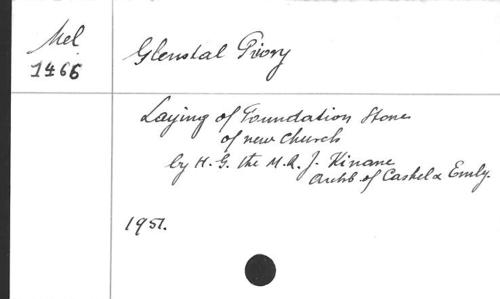 Mel
1466
Glenstal Priory
Laying of Foundation Stone
of new church
by H.G. the M.R. J. Kinane
Archb. of Cashel & Emly.
1951.